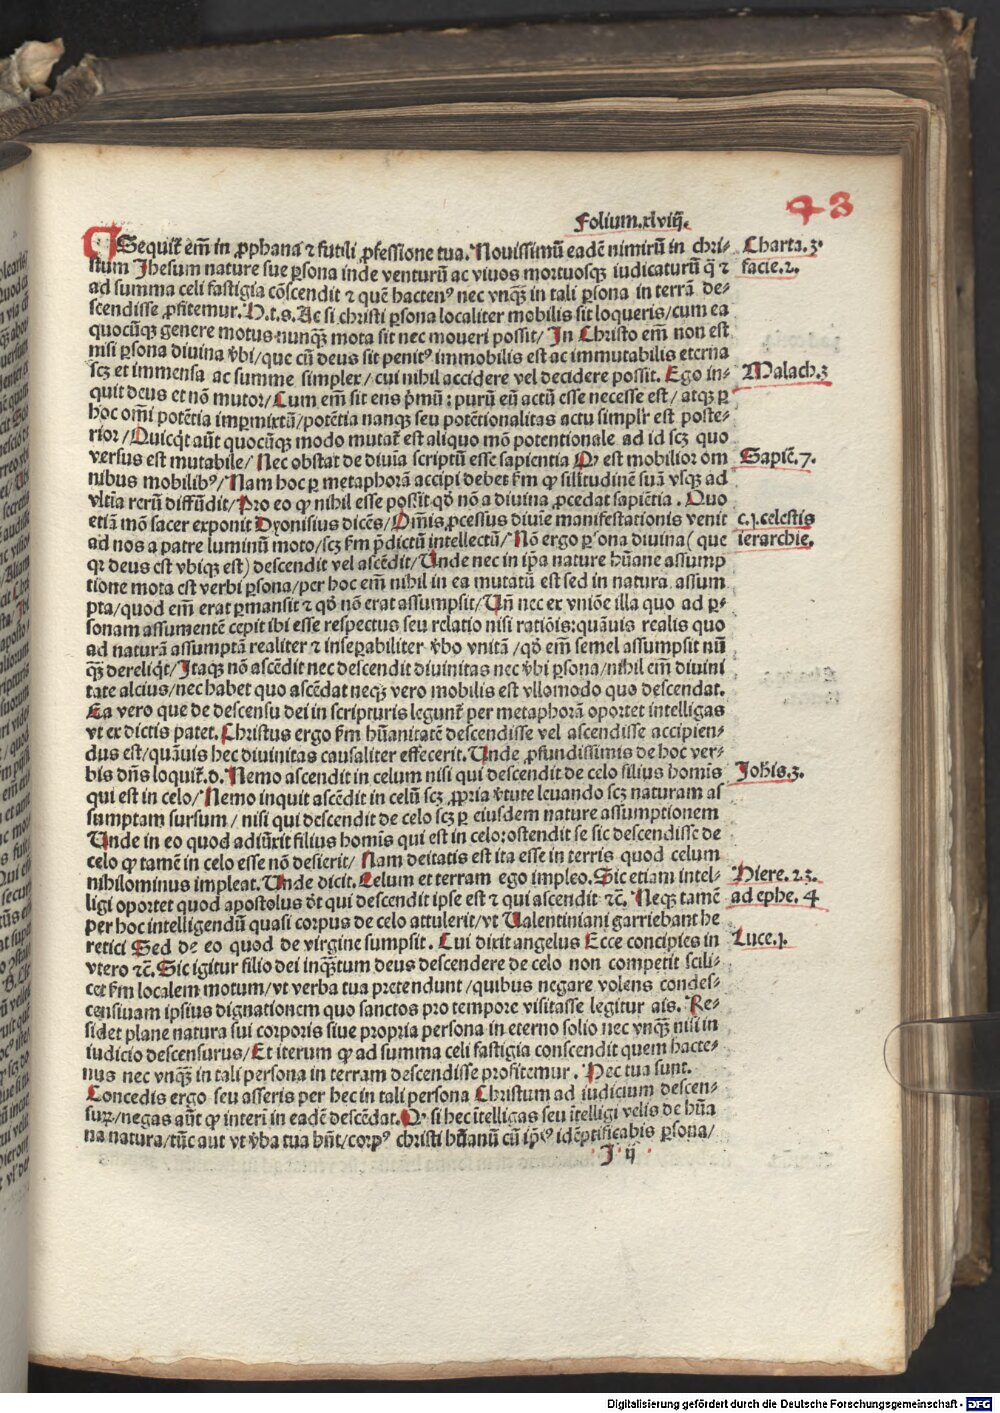 Folium.xlviij.
48
Sequit᷑ em̄ in ꝓphana ⁊ futili ꝓfessione tua. Nouissimū eadē nimirū in chri-
Charta.3.
stum Jhesum nature sue ꝑsona inde venturū ac viuos mortuosqȝ iudicaturū q̄ ⁊
facie.2.
ad summa celi fastigia cōscendit ⁊ quē hacten⁹ nec vnqȝ̄ in tali ꝑsona in terrā de-
scendisse ꝓfitemur. H.t.s. Ac si christi ꝑsona localiter mobilis sit loqueris/cum ea
quocūqȝ genere motus nunqȝ̄ mota sit nec moueri possit/ In Christo em̄ non est
nisi ꝑsona diuina v̄bi/que cū deus sit penit⁹ immobilis est ac immutabilis eterna
scȝ et immensa ac summe simplex/cui nihil accidere vel decidere possit. Ego in-
Malach.3
quit deus et nō mutor/ Cum em̄ sit ens p̄mū: purū eū actū esse necesse est/ atqȝ ꝑ
hoc om̄i potētia imꝑmixtū/potētia nanqȝ seu potētionalitas actu simplr̄ est poste-
rior/Quicqd̄ aūt quocūqȝ modo mutat᷑ est aliquo mō potentionale ad id scȝ quo
versus est mutabile/ Nec obstat de diuīa scriptū esse sapientia Ꝙ est mobilior om
Sapiē.7.
nibus mobilib⁹/ Nam hoc ꝑ metaphorā accipi debet ẜm ꝙ sil̄itudinē suā vsqȝ ad
vltīa rerū diffūdit/Pro eo ꝙ nihil esse possit qd̄ nō a diuina ꝓcedat sapiētia. Quo
etiā mō sacer exponit Dyonisius dicēs/ Om̄is ꝓcessus diuīe manifestationis venit
c.j.celestis
ad nos a patre luminū moto/scȝ ẜm p̄dictū intellectū/ Nō ergo ꝑsona diuina ( que
ierarchie.
qr̄ deus est vbiqȝ est) descendit vel ascēdit/ Unde nec in ip̄a nature hūane assump
tione mota est verbi ꝑsona/per hoc em̄ nihil in ea mutatū est sed in natura assum
pta/quod em̄ erat ꝑmansit ⁊ qd̄ nō erat assumpsit/ Un̄ nec ex vniōe illa quo ad ꝑ-
sonam assumentē cepit ibi esse respectus seu relatio nisi ratiōis: quāuis realis quo
ad naturā assumptā realiter ⁊ inseꝑabiliter v̄bo vnitā /qd̄ em̄ semel assumpsit nū
qȝ̄ dereliqt̄/ Itaqȝ nō ascēdit nec descendit diuinitas nec v̄bi ꝑsona/nihil em̄ diuini
tate alcius/nec habet quo ascēdat neqȝ vero mobilis est vllomodo quo descendat.
Ea vero que de descensu dei in scripturis legunt᷑ per metaphorā oportet intelligas
vt ex dictis patet. Christus ergo ẜm hūanitatē descendisse vel ascendisse accipien-
dus est/quāuis hec diuinitas causaliter effecerit. Unde ꝓfundissimis de hoc ver-
bis dn̄s loquit᷑.d. Nemo ascendit in celum nisi qui descendit de celo filius homīs
Joh̄is.3.
qui est in celo/ Nemo inquit ascēdit in celū scȝ ꝓpria v̄tute leuando scȝ naturam as
sumptam sursum/ nisi qui descendit de celo scȝ ꝑ eiusdem nature assumptionem
Unde in eo quod adiūxit filius homīs qui est in celo: ostendit se sic descendisse de
celo ꝙ tamē in celo esse nō desierit/ Nam deitatis est ita esse in terris quod celum
nihilominus impleat. Unde dicit. Celum et terram ego impleo. Sic etiam intel-
Hiere.23.
ligi oportet quod apostolus dt̄ qui descendit ipse est ⁊ qui ascendit ⁊c̄. Neqȝ tamē
ad ephe. 4
per hoc intelligendū quasi corpus de celo attulerit/vt Ualentiniani garriebant he
retici Sed de eo quod de virgine sumpsit. Cui dixit angelus Ecce concipies in
Luce.j.
vtero ⁊c̄. Sic igitur filio dei inqȝ̄tum deus descendere de celo non competit scili-
cet ẜm localem motum/vt verba tua pretendunt/quibus negare volens condes-
censiuam ipsius dignationem quo sanctos pro tempore visitasse legitur ais. Re-
sidet plane natura sui corporis siue propria persona in eterno solio nec vnqȝ̄ nisi in
iudicio descensurus/ Et iterum ꝙ ad summa celi fastigia conscendit quem hacte-
nus nec vnqȝ̄ in tali persona in terram descendisse profitemur. Hec tua sunt.
Concedis ergo seu asseris per hec in tali persona Christum ad iudicium descen-
suꝝ/negas aūt ꝙ interī in eadē descēdat. Ꝙ si hec ītelligas seu ītelligi velis de hūa
na natura/tūc aut vt v̄ba tua hn̄t/corp⁹ christi hūanū cū ip̄i⁹ idēptificabis ꝑsona/
J ij
Digitalisierung gefördert durch die Deutsche Forschungsgemeinschaft - DFG